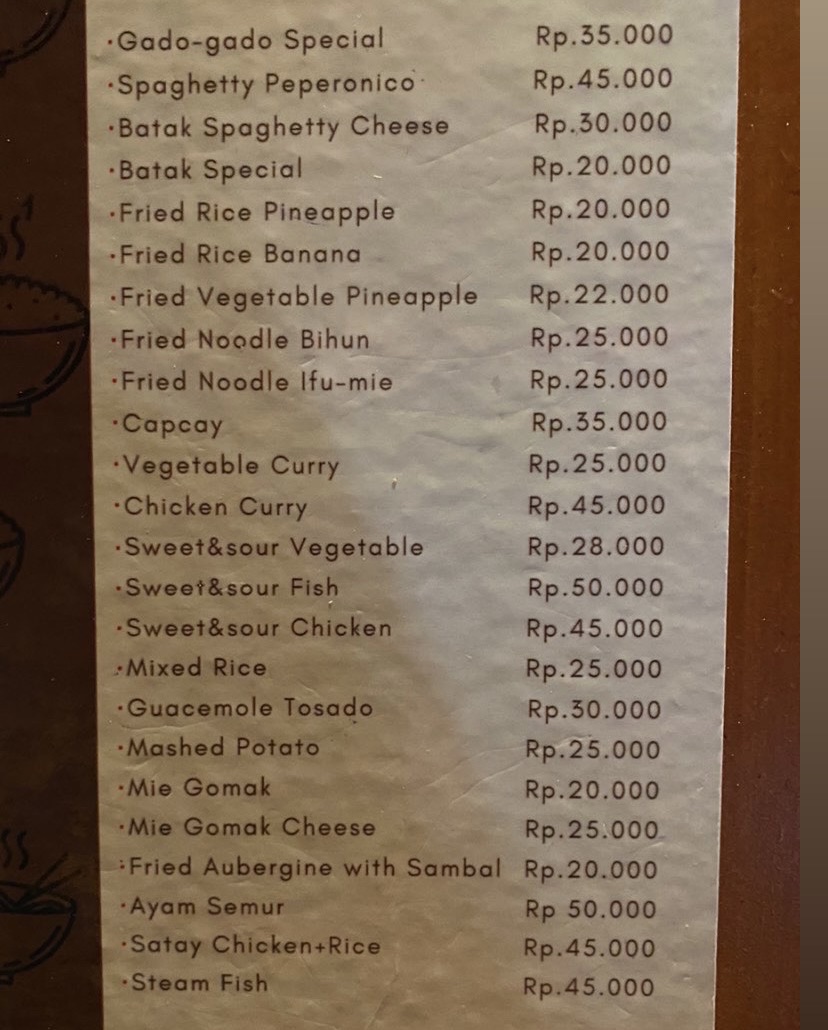 ·Gado-gado Special Rp.35.000
·Spaghetty Peperonico Rp.45.000
·Batak Spaghetty Cheese Rp.30.000
·Batak Special Rp.20.000
·Fried Rice Pineapple Rp.20.000
·Fried Rice Banana Rp.20.000
·Fried Vegetable Pineapple Rp.22.000
·Fried Noodle Bihun Rp.25.000
·Fried Noodle Ifu-mie Rp.25.000
·Capcay Rp.35.000
·Vegetable Curry Rp.25.000
·Chicken Curry Rp.45.000
·Sweet&sour Vegetable Rp.28.000
·Sweet&sour Fish Rp.50.000
·Sweet&sour Chicken Rp.45.000
·Mixed Rice Rp.25.000
·Guacemole Tosado Rp.30.000
·Mashed Potato Rp.25.000
·Mie Gomak Rp.20.000
·Mie Gomak Cheese Rp.25.000
·Fried Aubergine with Sambal Rp.20.000
·Ayam Semur Rp 50.000
·Satay Chicken+Rice Rp.45.000
·Steam Fish Rp.45.000